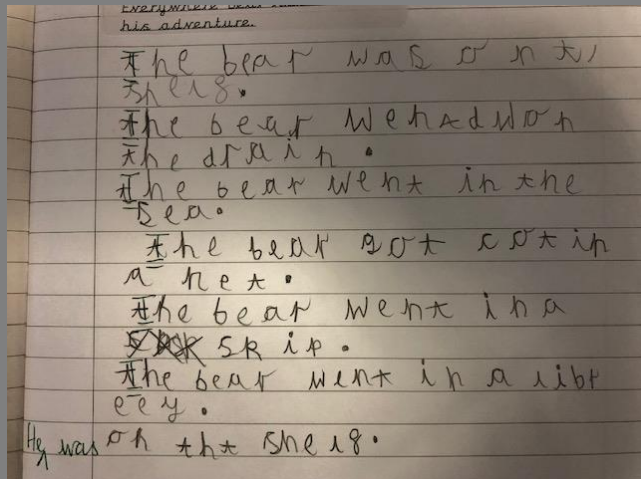 his adventure.
The bear was on the
shelf.
The bear wentdwon
the drain.
The bear went in the
sea.
The bear got cotin
a net.
The bear went in a
skip.
The bear went in a libr
eey.
He was on tht shelf.